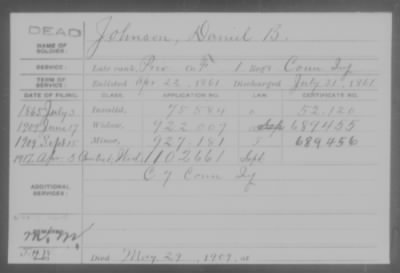 DEAD
NAME OF SOLDIER: Johnson, Daniel B.
SERVICE: Late rank, Priv. Co F, 1 Reg't Conn Inf
TERM OF SERVICE: Enlisted Apr 22, 1861 Discharged July 31, 1861
DATE OF FILING. CLASS. APPLICATION NO. LAW. CERTIFICATE NO.
1865 July 3 Invalid, 75584 52.120
1909 June 17 Widow, 922007 689455
1909 Sept 15 Minor, 927181 689456
1917 Apr. 3 Wid. 1102661 Sept
ADDITIONAL SERVICES: C 7 Conn Inf
Died May 29, 1909, at